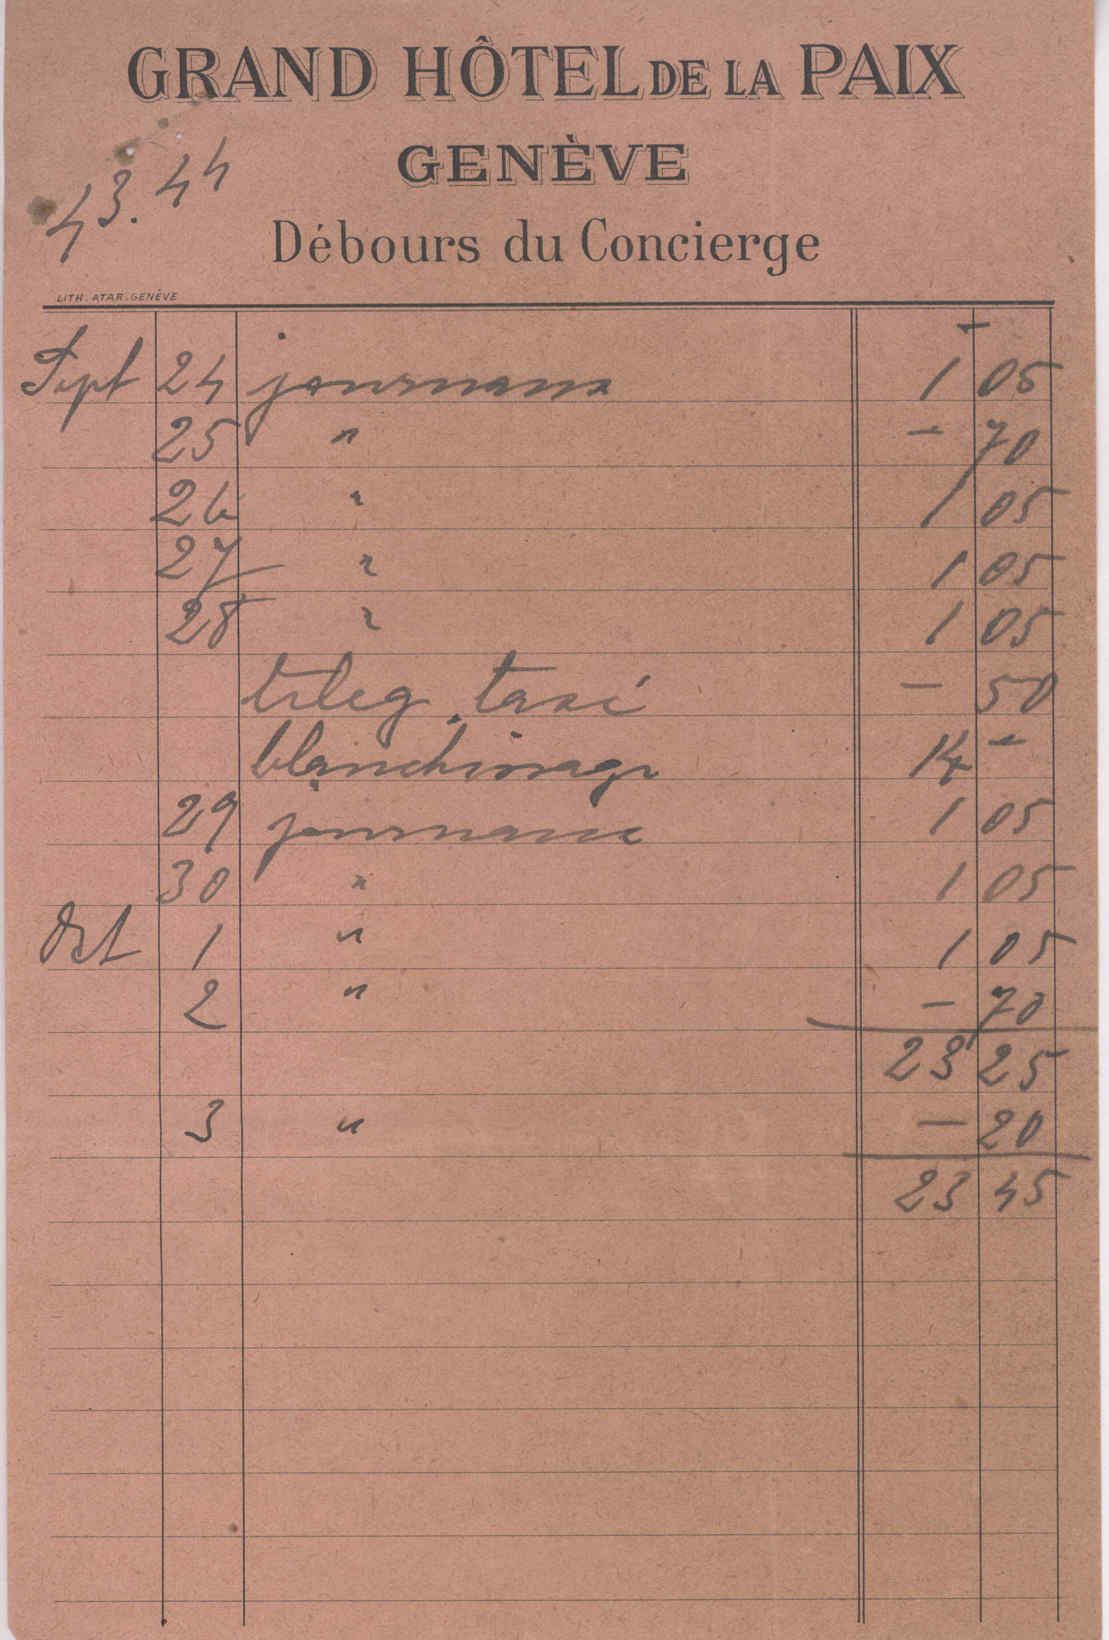 GRAND HÔTEL DE LA PAIX
GENÈVE
43.44
Débours du Concierge
LITH. ATAR. GENÈVE
Sept 24 journaux 1 05
25 " – 70
26 " 1 05
27 " 1 05
28 " 1 05
téleg. taxi – 50
blanchissage 14 –
29 journaux 1 05
30 " 1 05
Oct 1 " 1 05
2 " – 70
23 25
3 " – 20
23 45